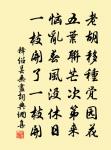 老胡移種覺園花
五葉聯芳次第來
惱亂春風沒休日
一枝開了一枝開
釋紹曇無畫詞典網